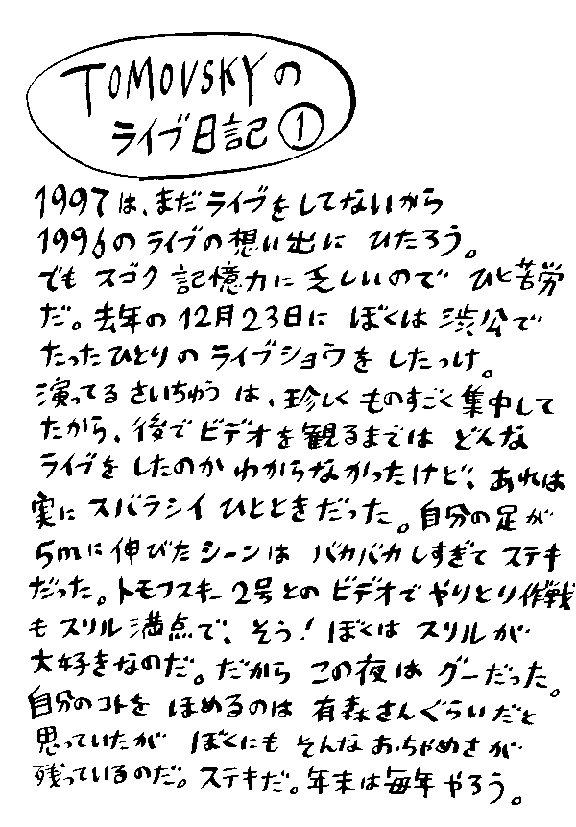 TOMOVSKYの
ライブ日記①
1997は、まだライブをしてないから
1996のライブの想い出に ひたろう。
でも スゴク 記憶力に乏しいので ひと苦労
だ。去年の12月23日に ぼくは 渋公で
たったひとりの ライブショウを したっけ。
演ってる さいちゅう は、珍しく ものすごく集中して
たから、後で ビデオを観るまでは どんな
ライブを したのか わからなかったけど、あれは
実に スバラシイ ひとときだった。自分の足が
5mに伸びたシーンは バカバカしすぎて ステキ
だった。トモフスキー2号との ビデオで やりとり作戦
も スリル満点で、そう!ぼくは スリルが
大好きなのだ。だから この夜は グーだった。
自分のコトを ほめるのは 有森さんぐらいだと
思っていたが ぼくにも そんな お・ちゃめさが
残っているのだ。ステキだ。年末は毎年やろう。